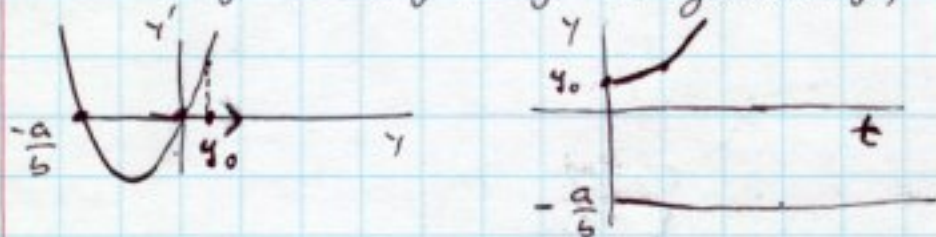 y'
y
-a/b
y₀
y
y₀
t
-a/b